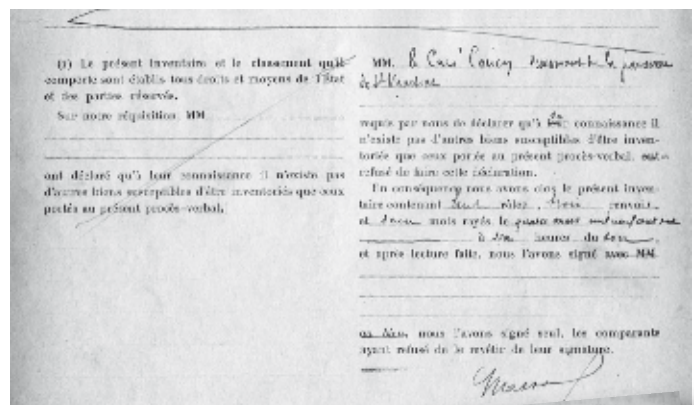 (1) Le présent inventaire et le classement qu'il
comporte sont établis tous droits et moyens de l'État
et des parties réservés.
Sur notre réquisition, MM.
ont déclaré qu'à leur connaissance il n'existe pas
d'autres biens susceptibles d'être inventoriés que ceux
portés au présent procès-verbal.
MM. le Curé
de St
requis par nous de déclarer qu'à connaissance il
n'existe pas d'autres biens susceptibles d'être inven-
toriés que ceux portés au présent procès-verbal, ont
refusé de faire cette déclaration.
En conséquence nous avons clos le présent inven-
taire contenant rôles, renvois
et mots rayés, le
à heures du soir,
et après lecture faite, nous l'avons signé avec MM.
nous l'avons signé seul, les comparants
ayant refusé de le revêtir de leur signature.